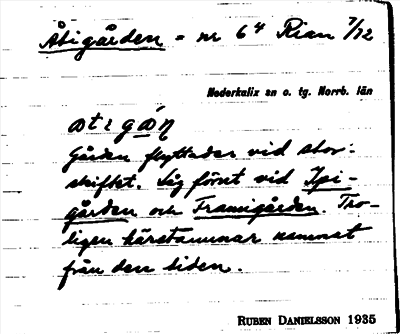 Åtigården = nr 6⁴ Rian 7/72
Nederkalix sn o. tg. Norrb. län
Gården flyttades vid stor-
skiftet. Låg förut vid Ypi-
gården och Framigården. Tro-
ligen härstammar namnet
från den tiden.
RUBEN DANIELSSON 1935